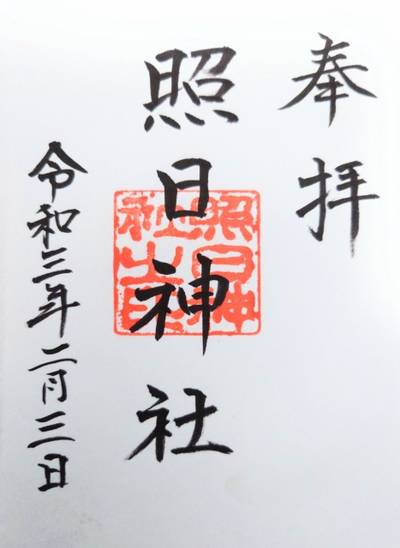 奉拝
照日神社
照日神社之印
令和三年二月三日